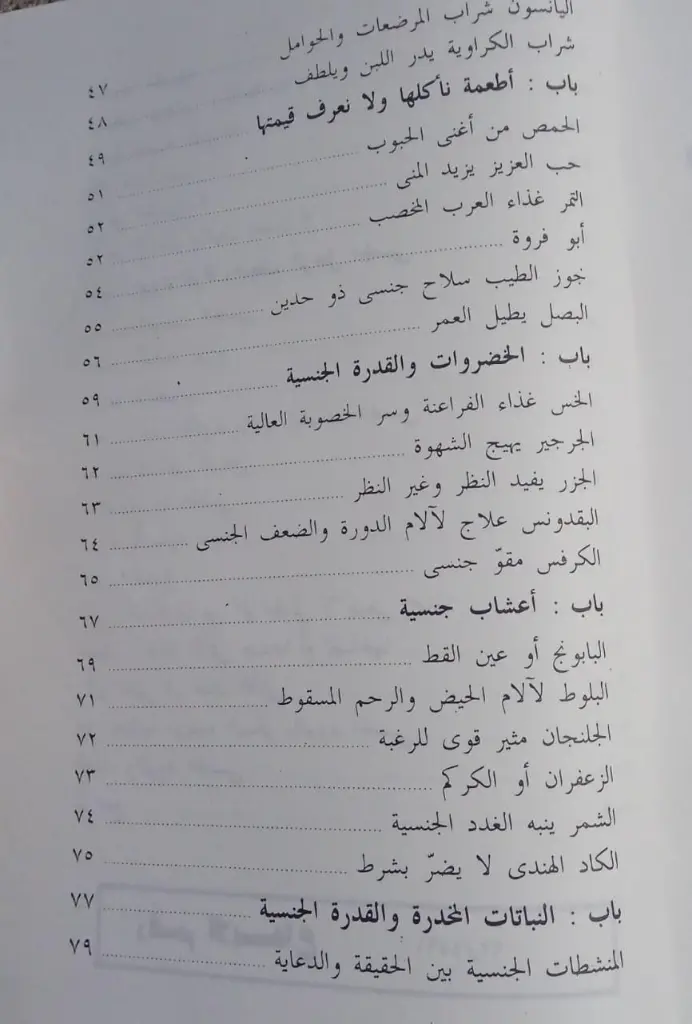 اليانسون شراب المرضعات والحوامل ٤٧
شراب الكراوية يدر اللبن ويلطف ٤٨
باب : أطعمة نأكلها ولا نعرف قيمتها ٤٩
الحمص من أغنى الحبوب ٥١
حب العزيز يزيد المنى ٥٢
التمر غذاء العرب المخصب ٥٢
أبو فروة ٥٤
جوز الطيب سلاح جنسى ذو حدين ٥٥
البصل يطيل العمر ٥٦
باب : الخضروات والقدرة الجنسية ٥٩
الخس غذاء الفراعنة وسر الخصوبة العالية ٦١
الجرجير يهيج الشهوة ٦٢
الجزر يفيد النظر وغير النظر ٦٣
البقدونس علاج لآلام الدورة والضعف الجنسى ٦٤
الكرفس مقوّ جنسى ٦٥
باب : أعشاب جنسية ٦٧
البابونج أو عين القط ٦٩
البلوط لآلام الحيض والرحم المسقوط ٧١
الجلنجان مثير قوى للرغبة ٧٢
الزعفران أو الكركم ٧٣
الشمر ينبه الغدد الجنسية ٧٤
الكاد الهندى لا يضرّ بشرط ٧٥
باب : النباتات المخدرة والقدرة الجنسية ٧٧
المنشطات الجنسية بين الحقيقة والدعاية ٧٩